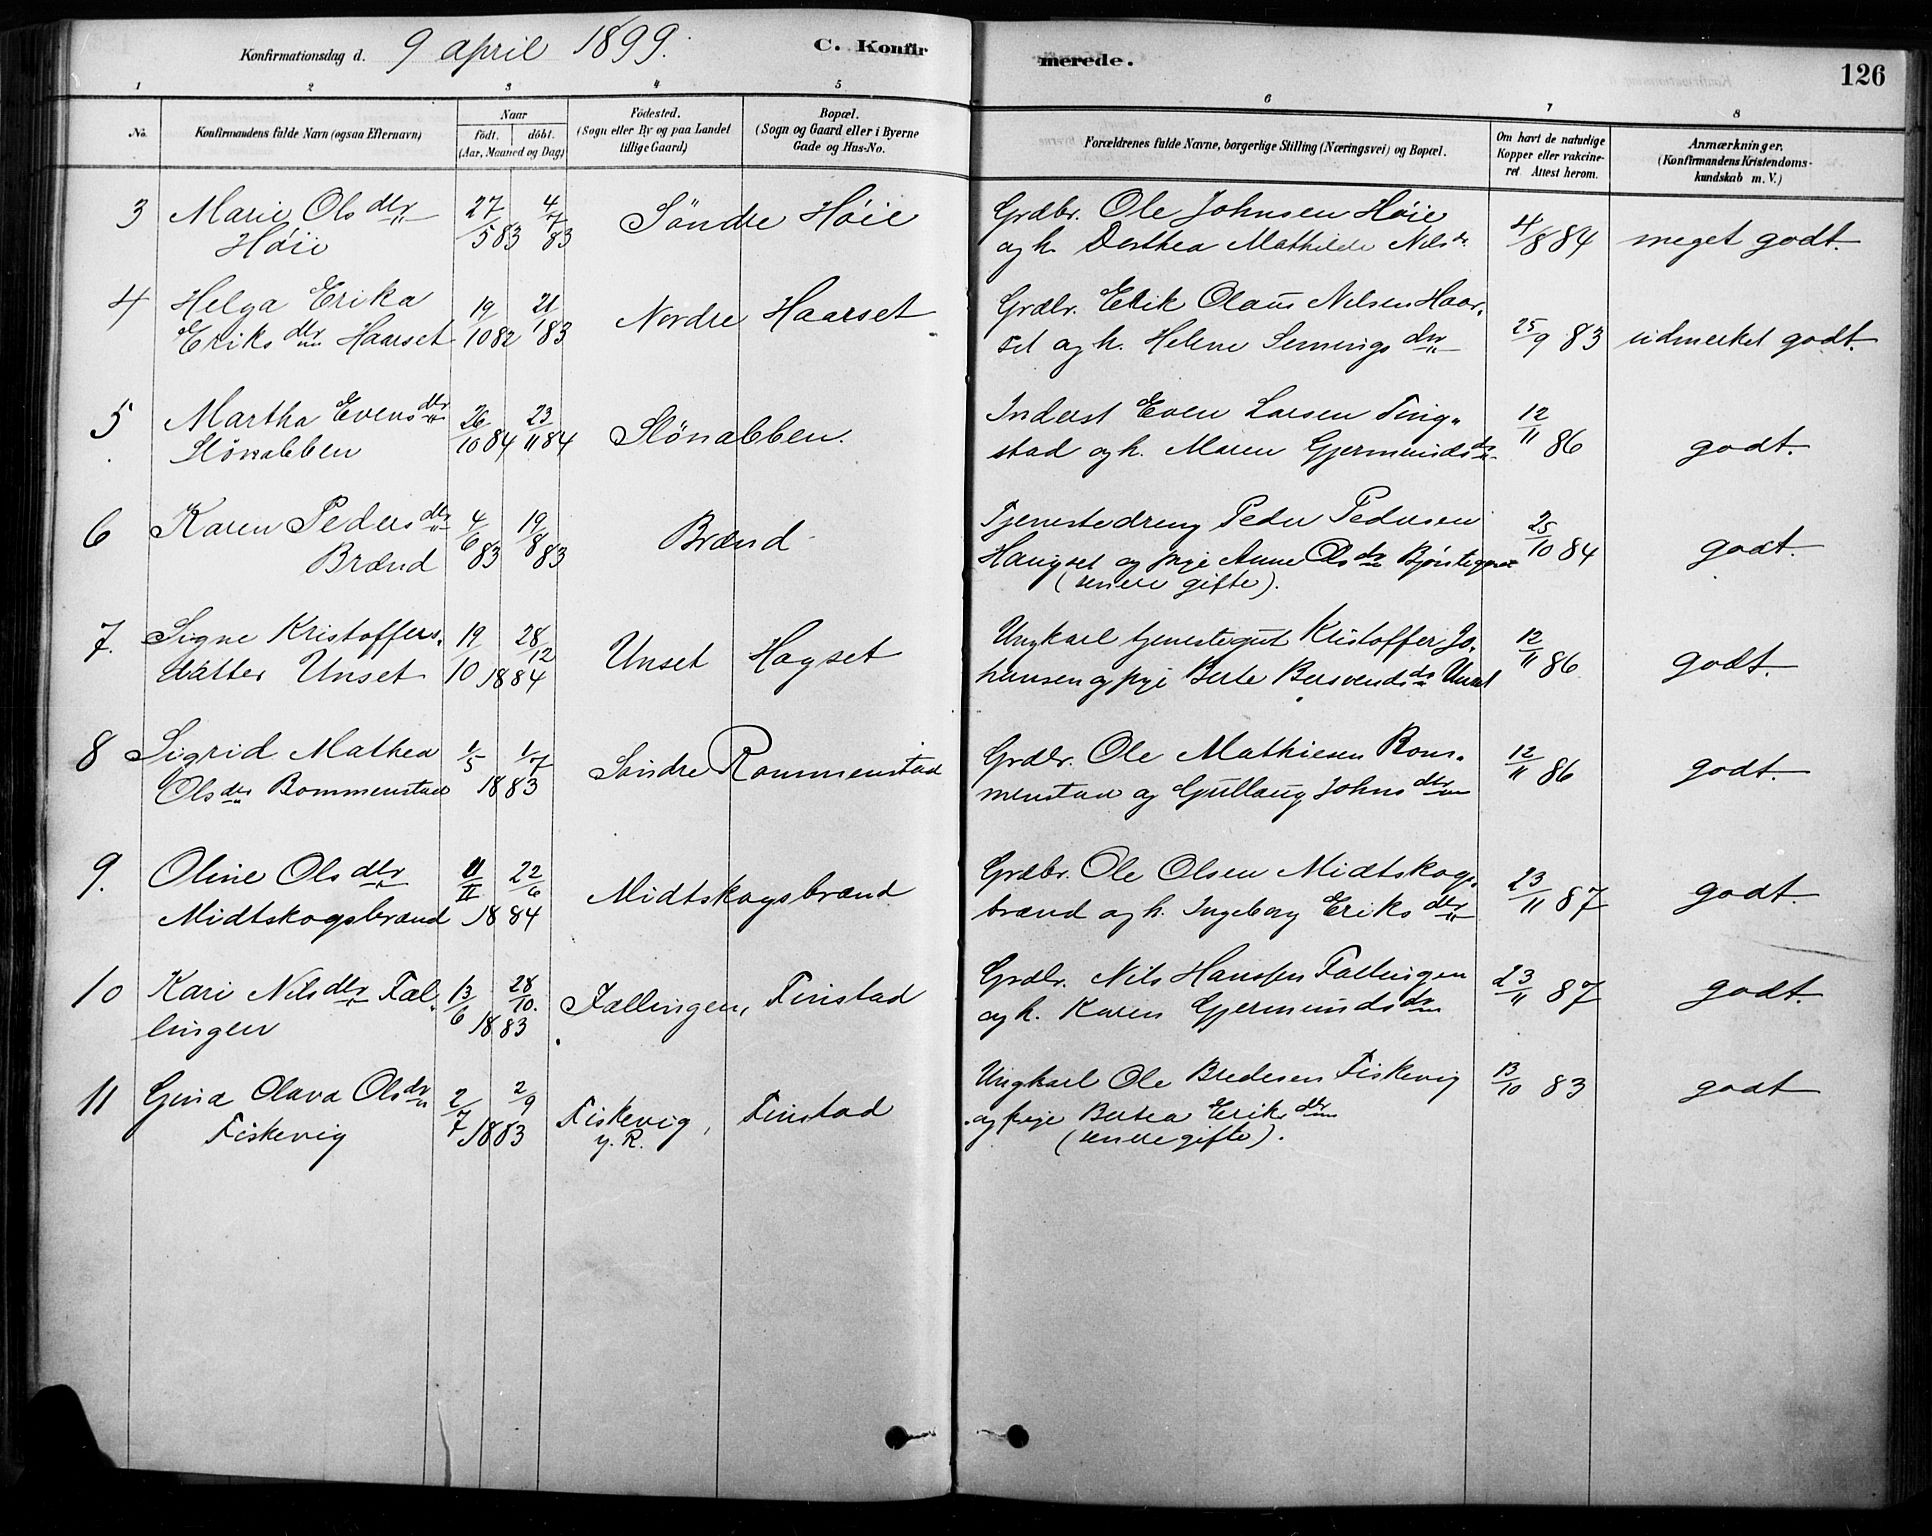 Konfirmationsdag d. 9 april 1899.
C. Konfir
merede.
126
1 2 3 4 5 6 7 8
No.
Konfirmandens fulde Navn (ogsaa Efternavn)
Naar
födt. döbt.
(Aar, Maaned og Dag)
Födested.
(Sogn eller By og paa Landet
tillige Gaard)
Bopæl.
(Sogn og Gaard eller i Byerne
Gade og Hus-No.
Forældrenes fulde Navne, borgerlige Stilling (Næringsvei) og Bopæl.
Om havt de naturlige
Kopper eller vakcine-
ret. Attest herom.
Anmærkninger.
(Konfirmandens Kristendoms-
kundskab m. V.)
3 Marie Olsdtr 27/5 83 4/7 83 Söndre Höie Grdbr. Ole Johnsen Höie 4/8 84 meget godt.
Höie og h. Dorthea Mathilde Nilsd.
4 Helga Erika 19/10 82 21/1 83 Nordre Haarset Grdbr. Erik Olaus Nilsen Haar-
Eriksdtr Haarset set og h. Helene Semmingsdtr 25/9 83 udmerket godt.
5 Martha Evensdtr 26/10 84 23/11 84 Stönabben. Inderst Even Larsen Ting-
Stönabben stad og h. Maren Gjermundsd. 12/11 86 godt.
6 Karen Pedersdtr 4/6 83 19/8 83 Brænd Tjenestedreng Peder Pedersen 25/10 84 godt.
Brænd Haugset og pige Anne Olsdr
(senere gifte).
7. Signe Kristoffers- 19/10 28/12 Unset Hagset Ungkarl tjenestegut Kristoffer Jo-
datter Unset 1884 hansen og pige Berte Bersvendsdr Unset 12/11 86 godt.
8 Sigrid Mathea 1/5 1/7 Söndre Rommenstad Grdbr. Ole Mathiesen Rom-
Olsdtr Rommenstad 1883 menstad og Gullaug Johnsdtr 12/11 86 godt.
9. Oline Olsdtr 11/II 22/6 Midtskogsbrænd Grdbr. Ole Olsen Midtskogs-
Midtskogsbrænd 1884 brænd og h. Ingeborg Eriksdtr 23/11 87 godt.
10 Kari Nilsdtr Fal- 13/6 28/10. Fallingen, Finstad Grdbr. Nils Hansen Fallingen 23/11 87 godt.
lingen 1883 og h. Karen Gjermundsdr
11 Gina Olava Olsdr 2/7 2/9 Fiskevig, Finstad Ungkarl Ole Bredesen Fiskevig 13/10 83 godt
Fiskevig 1883 y. R. og pige Bertea Eriksdtr
(senere gifte).